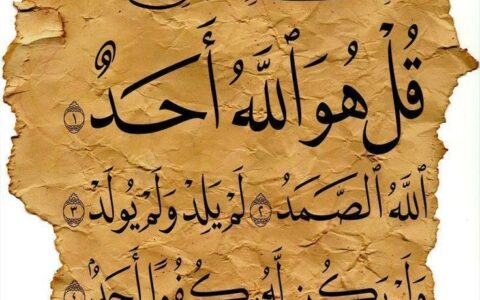 قُلْ هُوَ ٱللَّهُ أَحَدٌ ١
ٱللَّهُ ٱلصَّمَدُ ٢ لَمْ يَلِدْ وَلَمْ يُولَدْ ٣
وَلَمْ يَكُن لَّهُۥ كُفُوًا أَحَدٌۢ ٤